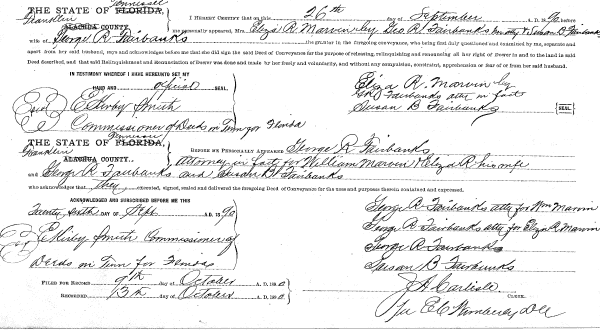 Tennessee
THE STATE OF FLORIDA,
Franklin
ALACHUA COUNTY.
I HEREBY CERTIFY that on this 26th day of September A. D. 1890 before
me personally appeared Mrs. Eliza R. Marvin by Geo R. Fairbanks Susan B Fairbanks
wife of George R. Fairbanks the grantor in the foregoing conveyance, who being first duly questioned and examined by me, separate and
apart from her said husband, says and acknowledges before me that she did sign the said Deed of Conveyance for the purpose of releasing, relinquishing and renouncing all her right of Dower in and to the land in said
Deed described, and that said Relinquishment and Renunciation of Dower was done and made to be freely and voluntarily, and without any compulsion, constraint, apprehension or fear of or from her said husband.
IN TESTIMONY WHEREOF I HAVE HEREUNTO SET MY
HAND AND official SEAL
E Kirby Smith
Commissioner of Deeds in Tenn for Florida
Eliza R. Marvin by
G R Fairbanks atty in fact
Susan B Fairbanks
SEAL
Tennessee
THE STATE OF FLORIDA,
Franklin
ALACHUA COUNTY.
BEFORE ME PERSONALLY APPEARED George R Fairbanks
Attorney in fact for William Marvin & Eliza R his wife
and George R Fairbanks and Susan B Fairbanks
who acknowledges that they executed, signed, sealed and delivered the foregoing Deed of Conveyance for the uses and purposes therein contained and expressed.
ACKNOWLEDGED AND SUBSCRIBED BEFORE ME THIS
Twenty sixth DAY OF Sept A. D. 1890
E Kirby Smith Commissioner of
Deeds in Tenn for Florida
George R Fairbanks atty for Wm Marvin
George R. Fairbanks atty for Eliza R Marvin
George R Fairbanks
Susan B Fairbanks
FILED FOR RECORD 9th day of October A. D. 1890
RECORDED 13th day of October A. D. 1890
J A Carlisle
CLERK.
per E C Wimberly D C